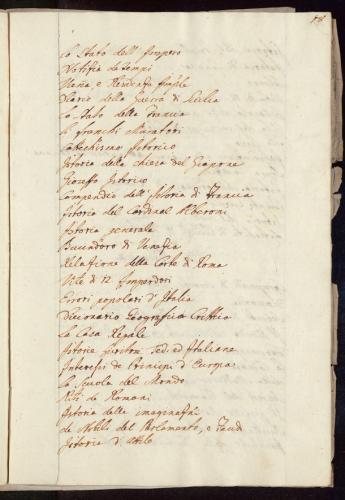 Lo Stato dell' Impero
Notizia de tempi
Diario della Guerra di Sicilia
Lo Stato della Francia
Li franchi Muratori
Catechismo Istorico
Istoria della chiesa del Giapone
Gioseffo Istorico
Compendio dell' Istoria di Francia
Istoria del Cardinal Alberoni
Istoria generale
Bucindoro di Venezia
Relazione della Corte di Roma
Vite di 12 Imperadori
Errori popolari d' Italia
Dizionario Geografico Critico
La Casa Regale
Istorie Ted. ed Italiane
Interessi de Principi d' Europa
La Scuola del Mondo
Riti de Romani
Istoria delle imaginazni,
de Nobili del Parlamento, e
Istoria d'